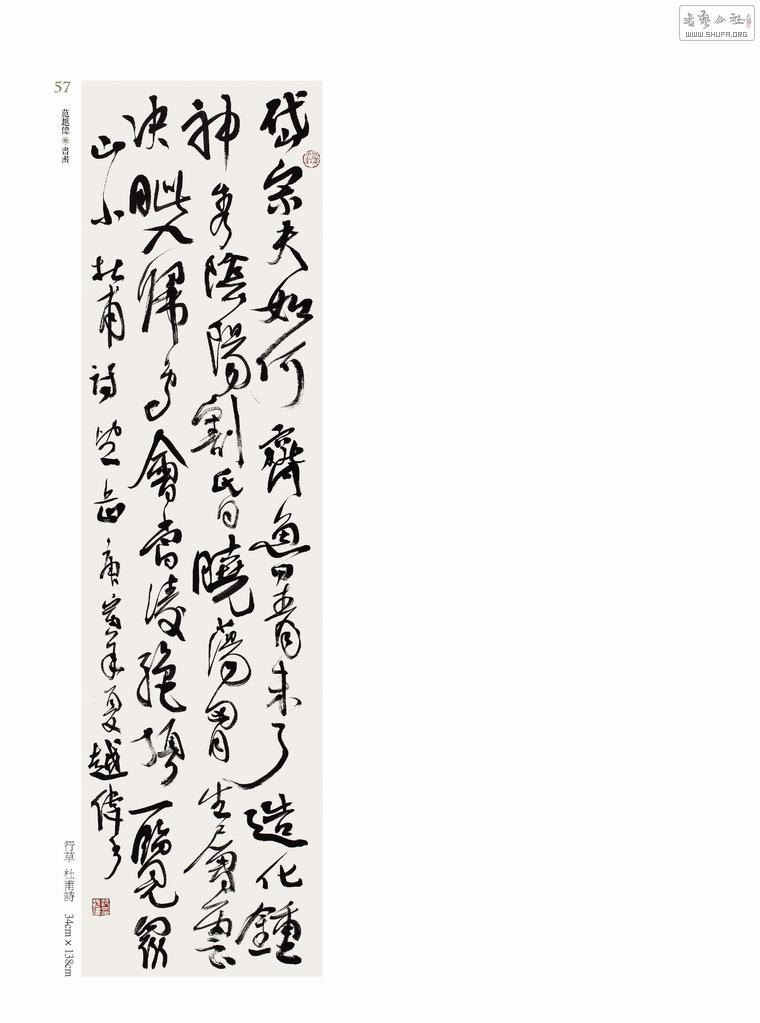 書藝公社
WWW.SHUFA.ORG
57
范越偉 書畫
岱宗夫如何齊魯青未了造化鍾
神秀陰陽割昏曉蕩胷生層雲
決眦入歸鳥會當凌絕頂一覽眾
山小 杜甫詩望岳 庚寅年夏越偉書
行草 杜甫詩 34cm×138cm